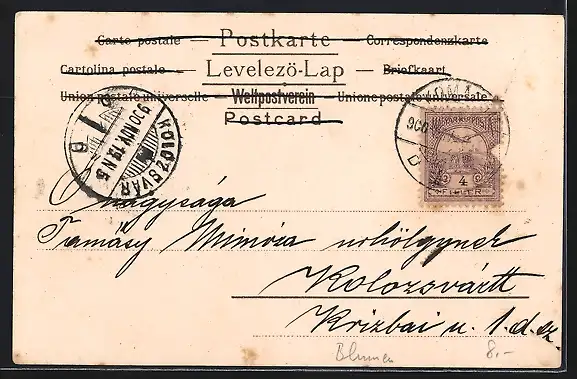 Carte postale Postkarte Correspondenzkarte
Cartolina postale Levelező-Lap Briefkaart
Union postale universelle Weltpostverein Unione postale universale
Postcard
KOLOZSVÁR
MAGYAR KIR. POSTA
4
FILLÉR
Őnagysága
Tamásy Mimóia urhölgynek
Kolozsvártt
Krizbai u. 1. d. sz.
Blumen 8.-